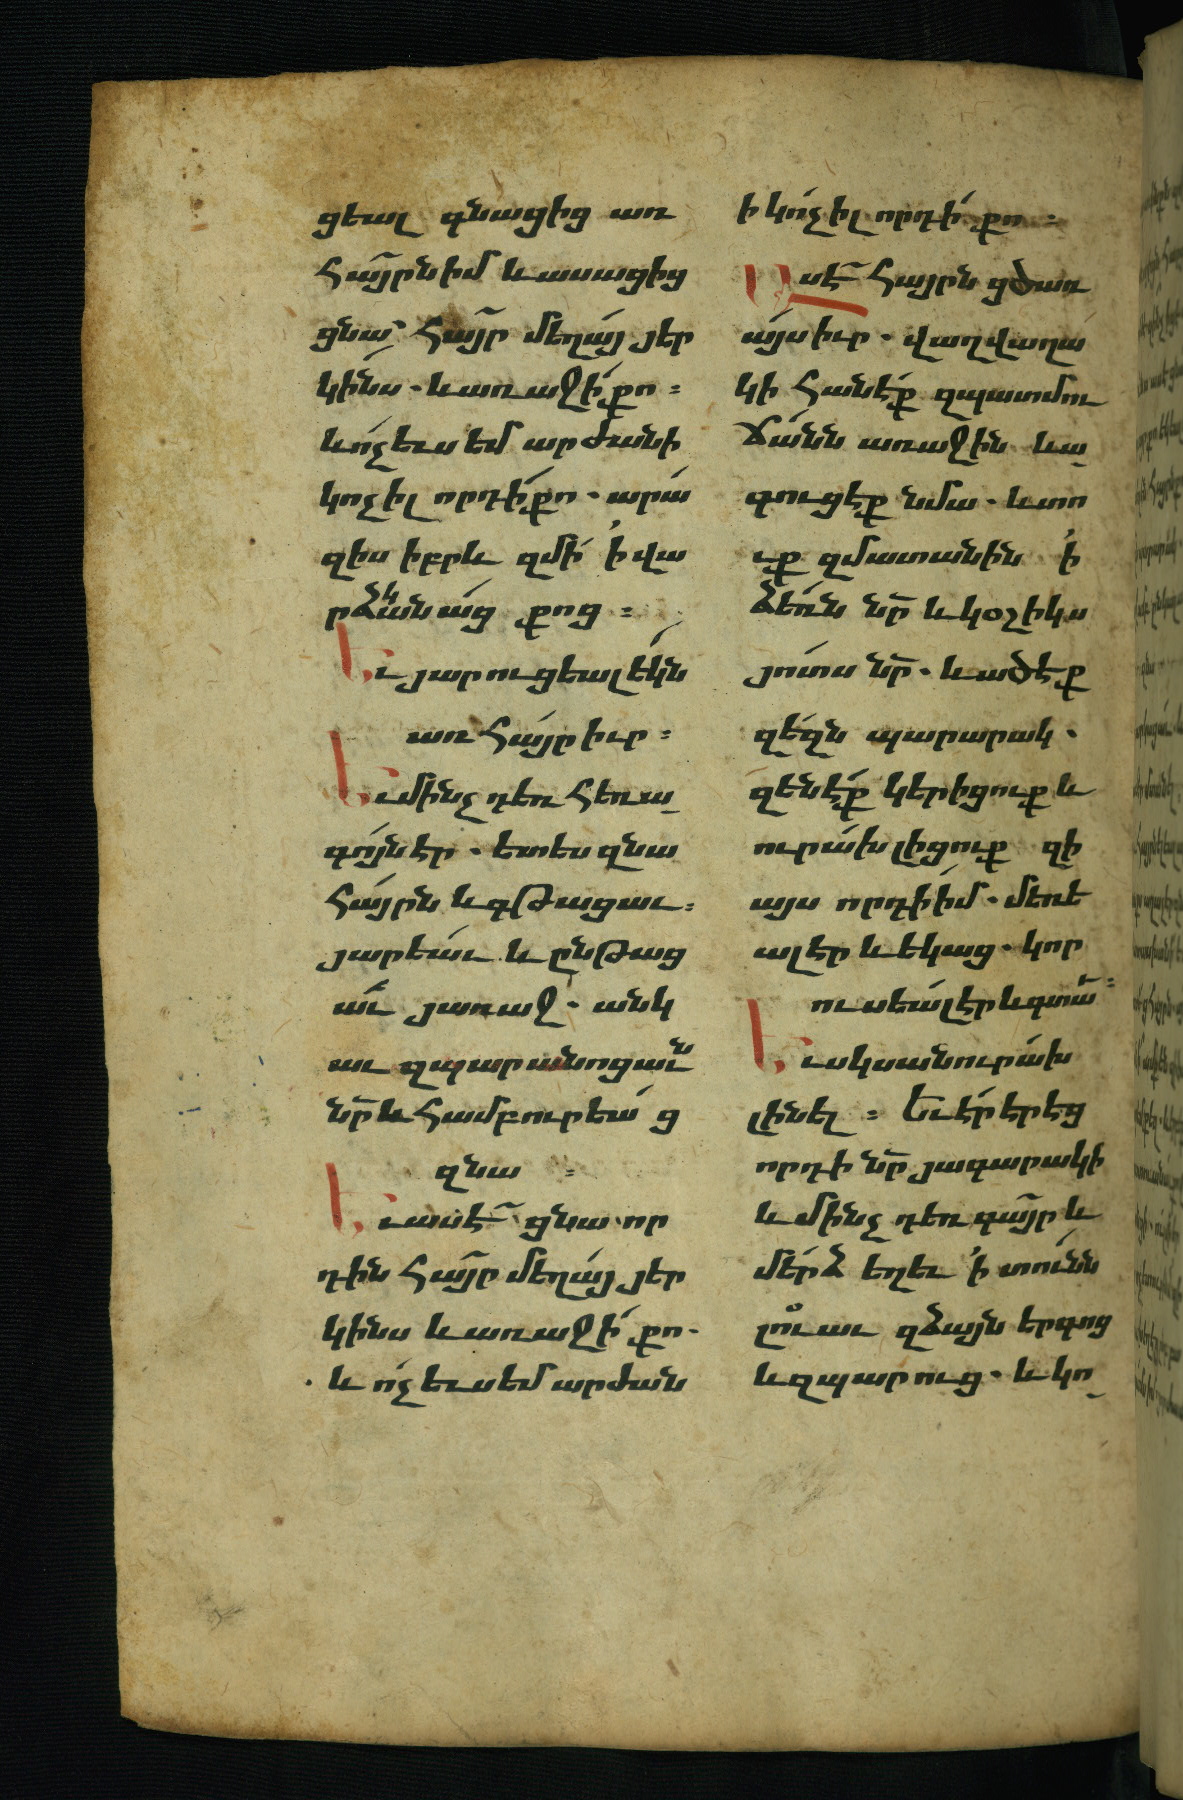 ցեալ գնացից առ
հայրն իմ և ասացից
ցնա՝ հայր մեղայ յեր
կինս. և առաջի քո։
և ոչ ևս եմ արժանի
կոչիլ որդի քո. արա
զիս իբրև զմի ՚ի վա
րձկանաց քոց։
Եւ յարուցեալ եկն
առ հայր իւր։
Եւ մինչ դեռ հեռա֊
գոյն էր. ետես զնա
հայրն և գթացաւ։
յարեաւ և ընթաց
աւ յառաջ. անկ
աւ զպարանոցաւն
նր և համբուրեաց
զնա։
Եւ ասէ ցնա որ
դին հայր մեղայ յեր
կինս և առաջի քո.
և ոչ ևս եմ արժան
ի կոչիլ որդի քո։
Ասէ հայրն ցծառ
այս իւր. վաղվաղա
կի հանէք զպատմու
ճանն առաջին և ա֊
գուցէք նմա. և տո
ւք զմատանին ՚ի
ձեռն նր և կօշիկս
յոտս նր. և ածէք
զեզն պարարակ.
զենէք կերիցուք և
ուրախ լիցուք զի
այս որդի իմ. մեռե
ալ էր և եկաց. կոր
ուսեալ էր և գտաւ։
Եւ սկսան ուրախ
լինել։ Եւ էր երեց
որդի նր յագարակի
և մինչ դեռ գայր և
մերձ եղև ՚ի տունն
լուաւ զձայն երգոց
և զպարուց. և կո֊